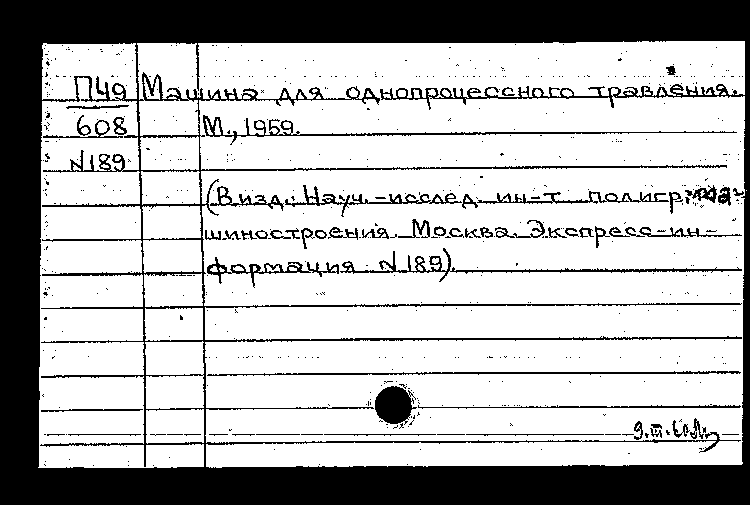 П49 Машина для однопроцессного травления.
608 М., 1959.
N189
(В изд.: Науч.-исслед. ин-т полигр. ма-
шиностроения. Москва. Экспресс-ин-
формация N 189).